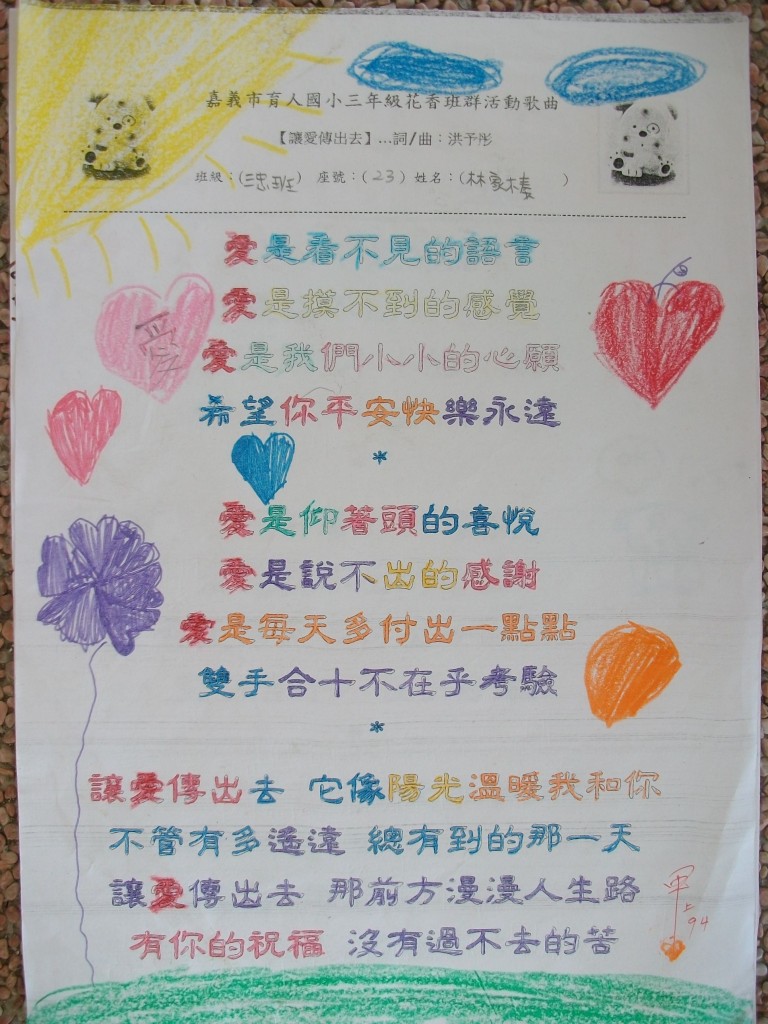 嘉義市育人國小三年級花香班群活動歌曲
【讓愛傳出去】…詞/曲：洪予彤
班級：(三忠班) 座號：(23) 姓名：(林家榛 )
愛是看不見的語言
愛是摸不到的感覺
愛是我們小小的心願
愛
希望你平安快樂永遠
*
愛是仰著頭的喜悅
愛是說不出的感謝
愛是每天多付出一點點
雙手合十不在乎考驗
*
讓愛傳出去 它像陽光溫暖我和你
不管有多遙遠 總有到的那一天
讓愛傳出去 那前方漫漫人生路
甲上
94
有你的祝福 沒有過不去的苦